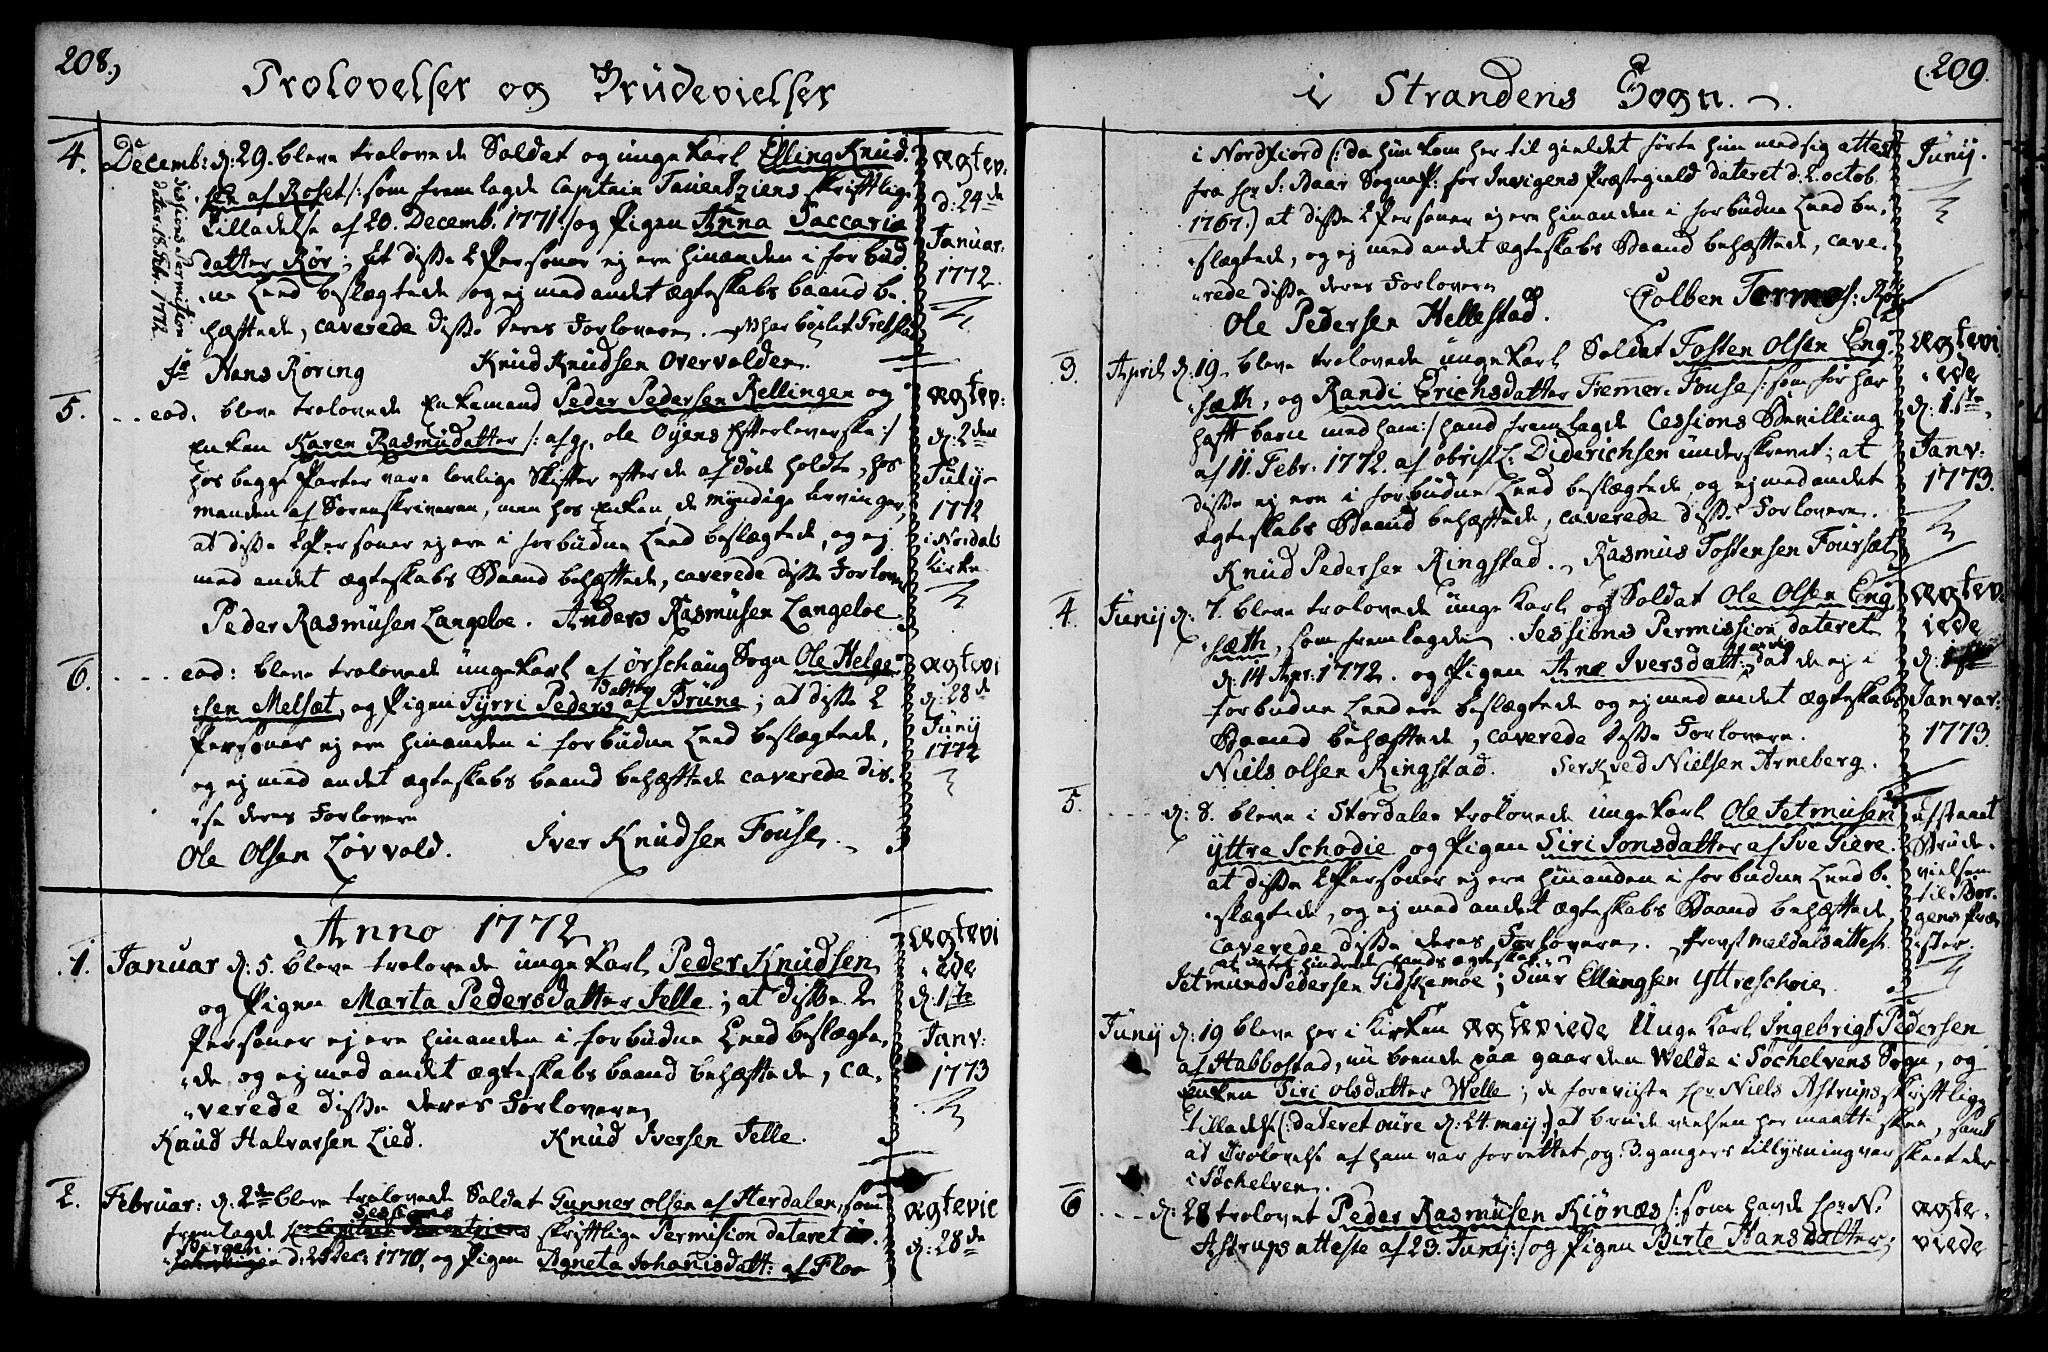 208.)
Trolovelser og Brüdevielser
4.
Decemb: d: 29. bleve trolovede Soldat og unge karl Elling Knud-
sen af Roset /: som fremlagde Capitain Tauentziens skriftlig
Tilladelse af 20. Decemb. 1771 :/ og Pigen Anna Saccaria
datter Rør; at disse 2 Personer ej ere hinanden i forbüd
ne Leed beslægtede og ej med andet ægteskabs baand be
hæftede, caverede disse deres Forlovere.
Sessions Permition
dater. 18. Febr. 1772.
Hans Röring Knud Knudsen Overvolden.
ægtev:
d: 24de
Januar.
1772.
5.
eod. bleve trolovede Enkemand Peder Pedersen Rellingen og
Enken Karen Rasmüdatter /: afg. Ole Öyens Efterleverske :/
hos begge Parter vare lovlige Skifter efter de afdöde holdte, hos
manden af Sorenskriveren, men hos Enken de myndige Arvinger,
at disse 2 Personer ej ere i forbüdne Leed beslægtede, og ej
med andet ægteskabs Baand behæftede, caverede disse Forlovere
Peder Rasmüsen Langeloe. Anders Rasmüsen Langeloe
ægtev:
d: 2den
July
1772
i Nordals
Kirke
6.
eod: bleve trolovede unge karl af Örschaug Sogn Ole Helge
sen Melsæt, og Pigen Tyrri Peders datter af Brüne; at disse 2
Personer ej ere hinanden i forbüdne Leed beslægtede,
og ej med andet ægteskabs baand behæftede caverede dis-
se deres Forlovere
Ole Olsen Lövvold. Iver Knüdsen Fouse.
ægtevi
d: 28de
Junij
1772
Anno 1772
1.
Januar d: 5. bleve trolovede unge karl Peder Knüdsen
og Pigen Marta Pedersdatter Jelle; at disse 2
Personer ej ere hinanden i forbudne Leed beslægte-
de, og ej med andet ægteskabs baand behæftede, ca-
verede disse deres Forlovere
Knud Halvarsen Lied. Knud Iversen Jelle.
ægtevi
ede
d: 1ste
Janv:
1773
2.
Februar: d: 2de bleve trolovede Soldat Gunner Olsen af Herdalen, som
fremlagde Sessions skriftlige Permision dateret
Bergen d: 2 Dec: 1770, og Pigen Agneta Johanisdatt: af Floe
ægtevie
d: 28de
209.
i Strandens Sogn.
i Nordfiord (: da hun kom her til gieldet förte hun med sig attest
fra hr. S: Baar SogneP: for Invigens Præstegield dateret d: 2 octob.
1767.) at disse 2 Personer ej ere hinanden i forbudne Leed be-
slægtede, og ej med andet ægteskabs Baand behæftede, cave-
rede disse deres Forlovere
Ole Pedersen Hellestad. Colben
Junij.
3.
April d: 19. bleve trolovede unge karl Soldat Tosten Olsen Eng
sæth, og Randi Erichsdatter Fremer-Fouse /: som för har
haft barn med ham :/ hand fremlagde Cessions Bevilling
af 11. Febr. 1772. af obristL: Diderichsen underskrevet; at
disse ej ere i forbudne Leed beslægtede, og ej med andet
ægteskabs Baand behæftede, caverede disse Forlovere.
Knüd Pedersen Ringstad. Rasmus Tostensen Foursæt
ægtevi
ede
d: 1ste
Janv:
1773.
4.
Junij d: 7. bleve trolovede unge karl og Soldat Ole Olsen Eng
sæth, som fremlagde Sessions Permission dateret
d: 14 Apr: 1772. og Pigen Ane Iversdatt: at de ej i
forbudne Leed ere beslægtede og ej med andet ægteskabs
Baand behæftede, caverede disse Forlovere.
Niels Olsen Ringstad. Serkved Nielsen Arneberg.
ægtev
iede
Janvar:
1773
5.
d: 8. bleve i Stordalen trolovede unge karl Ole Jetmüsen
yttre Schodie og Pigen Siri Jonsdatter af Sve Siere.
at disse 2 Personer ej ere hinanden i forbudne Leed be-
slægtede, og ej med andet ægteskabs Baand behæftede,
caverede disse deres Forlovere. Provst Meldals attest
at intet hindrede hands ægteskab
Jetmund Pedersen Gidskemoe; Siur Ellingsen Yttreschoie.
udstaaet
Brüde-
vielsen
til Bor-
gens Præ-
ster.
Junij d: 19 bleve her i Kirken ægteviede Unge Karl Ingebrigt Pedersen
af Habbostad, nu boende paa gaarden Welde i Söchelvens Sogn, og
Enken Siri Olsdatter Welle; de foreviiste hr. Niels Astrups skriftlige
tilladelse (: dateret oure d: 24. maij :) at brudevielsen her maatte skee, samt
at Trolovelse af ham var forrettet, og 3 gangers tillysning var skeet der
i Söchelven.
6
d: 28 trolovet Peder Rasmüsen Riönæs /: som havde hr. N.
Astrups atteste af 23. Junij :/ og Pigen Birte Hansdatter;
ægte-
viede